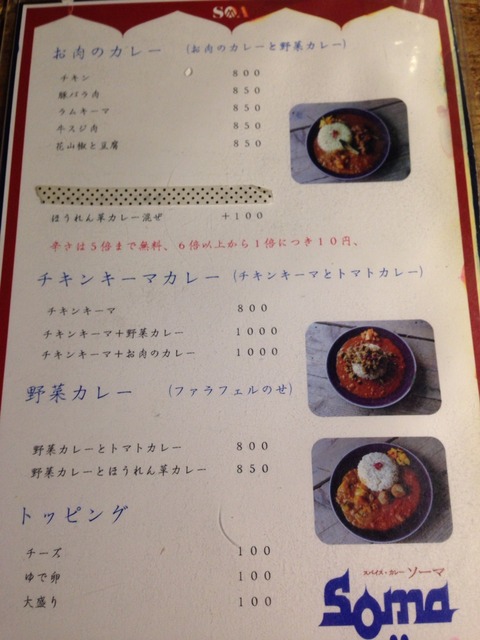 SOMA
お肉のカレー (お肉のカレーと野菜カレー)
チキン 800
豚バラ肉 850
ラムキーマ 850
牛スジ肉 850
花山椒と豆腐 850
ほうれん草カレー混ぜ +100
辛さは5倍まで無料、6倍以上から1倍につき10円、
チキンキーマカレー (チキンキーマとトマトカレー)
チキンキーマ 800
チキンキーマ+野菜カレー 1000
チキンキーマ+お肉のカレー 1000
野菜カレー (ファラフェルのせ)
野菜カレーとトマトカレー 800
野菜カレーとほうれん草カレー 850
トッピング
チーズ 100
ゆで卵 100
大盛り 100
スパイス・カレー ソーマ
Soma